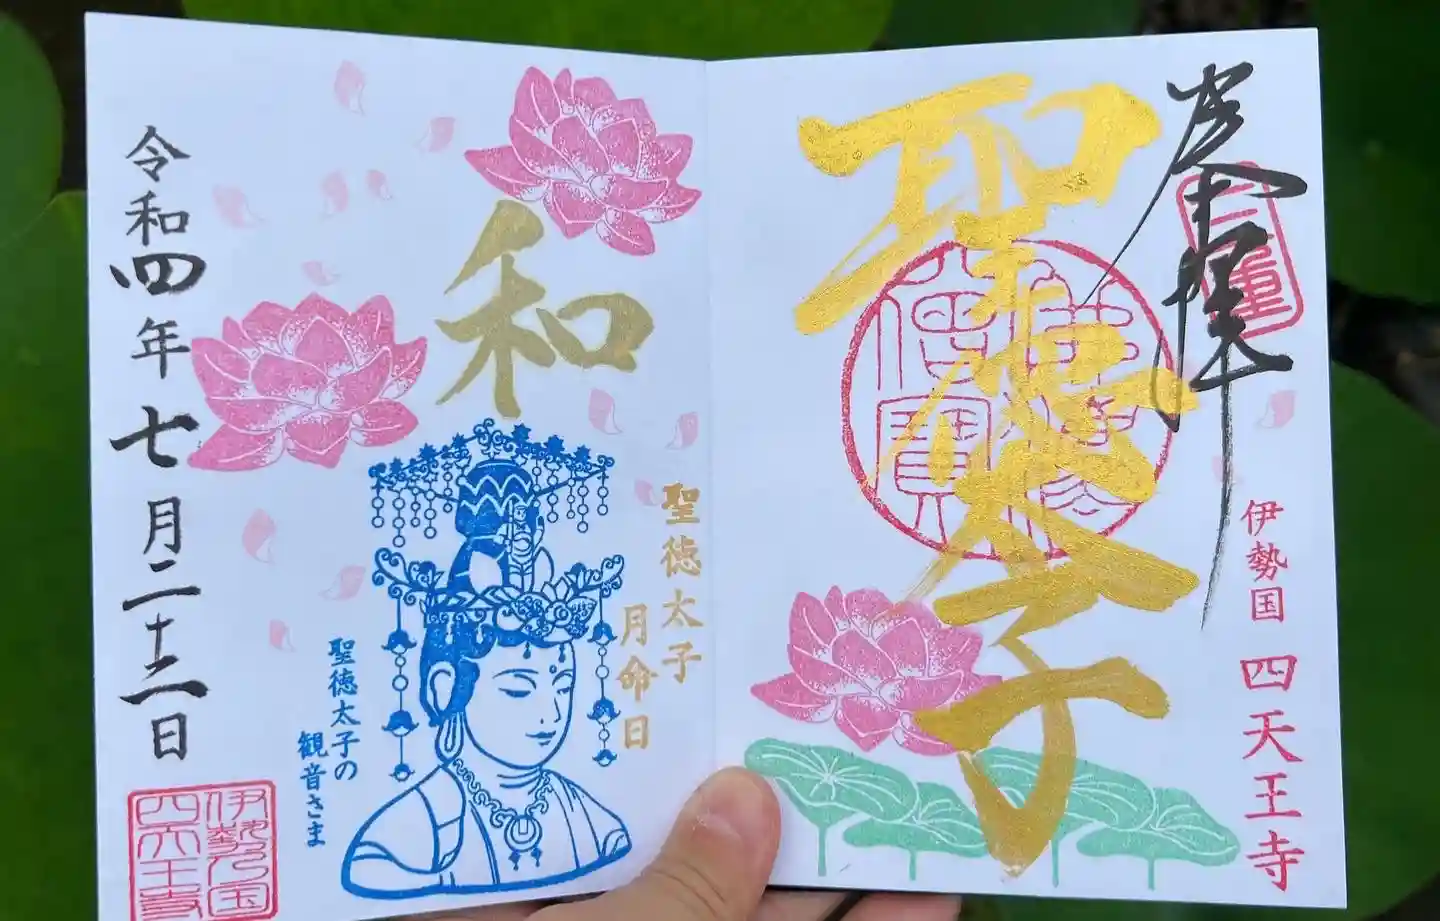 奉拝
聖徳太子
三重
佛法僧寶
伊勢国 四天王寺
和
聖徳太子
月命日
聖徳太子の
観音さま
令和四年七月二十二日
伊勢国
四天王寺